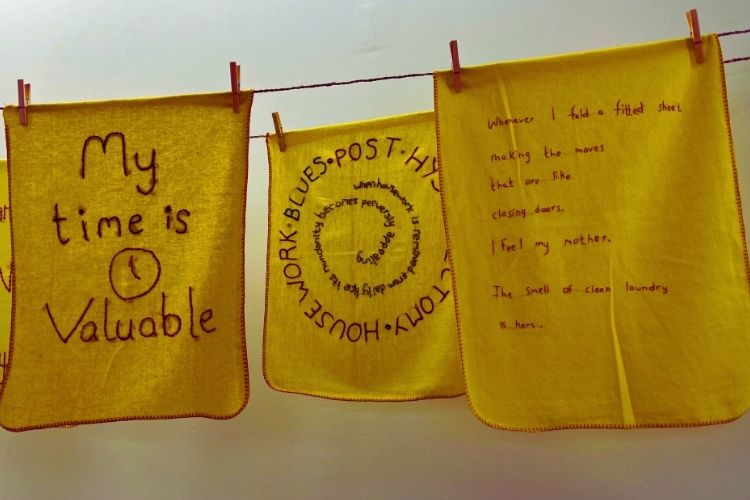 My
time is
Valuable
POST · HYS
ECTOMY · HOUSEWORK · BLUES ·
when housework is removed from daily life its mundanity becomes perversely appealing
Whenever I fold a fitted sheet
making the moves
that are like
closing doors,
I feel my mother.
The smell of clean laundry
is hers..